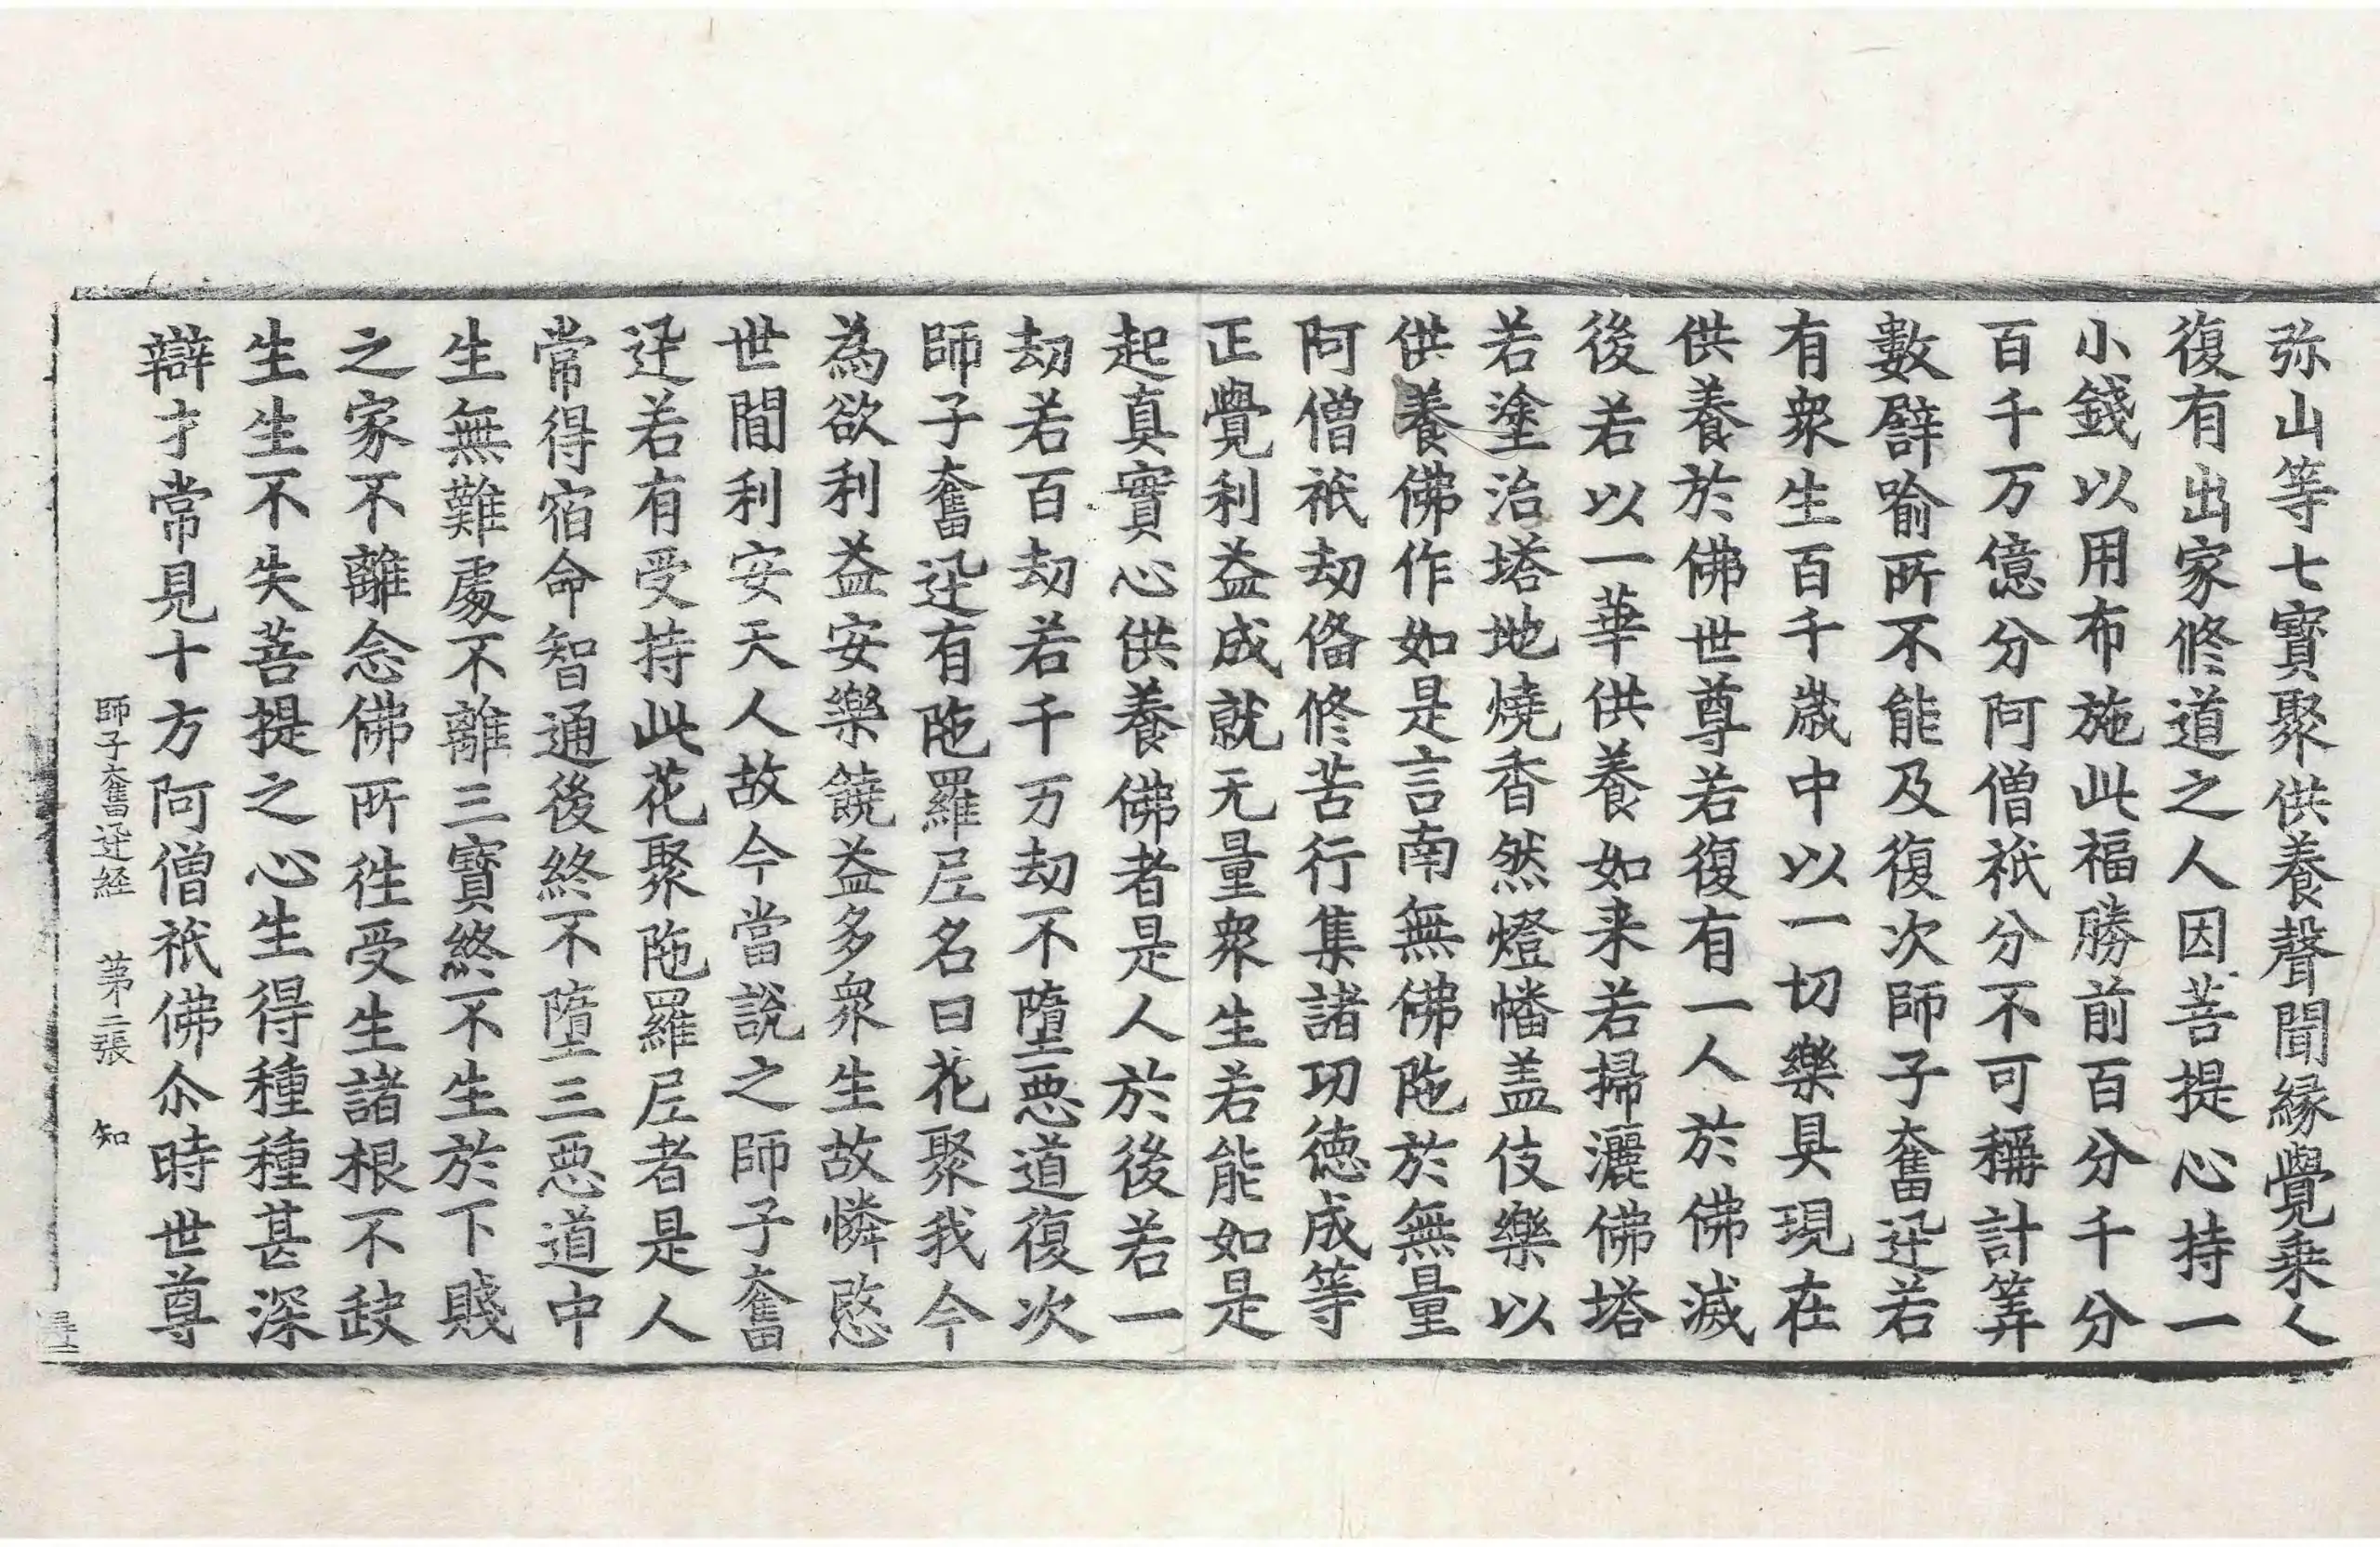 弥山等七寳聚供養聲聞緣覺乗人
復有出家修道之人因菩提心持一
小錢以用布施此福勝前百分千分
百千万億分阿僧祇分不可稱計筭
數譬喻所不能及復次師子奮迅若
有衆生百千歲中以一切樂具現在
供養於佛世尊若復有一人於佛滅
後若以一華供養如来若掃灑佛塔
若塗治塔地燒香然燈幡盖伎樂以
供養佛作如是言南無佛陁於無量
阿僧祇劫俻修苦行集諸功徳成等
正覺利益成就无量衆生若能如是
起真實心供養佛者是人於後若一
劫若百劫若千万劫不墮惡道復次
師子奮迅有陁羅尼名曰花聚我今
為欲利益安樂饒益多衆生故憐愍
世間利安天人故今當說之師子奮
迅若有受持此花聚陁羅尼者是人
常得宿命智通後終不墮三惡道中
生無難處不離三寳終不生於下賤
之家不離念佛所徃受生諸根不缺
生生不失菩提之心生得種種甚深
辯才常見十方阿僧祇佛尒時世尊
師子奮迅経 第二張 知